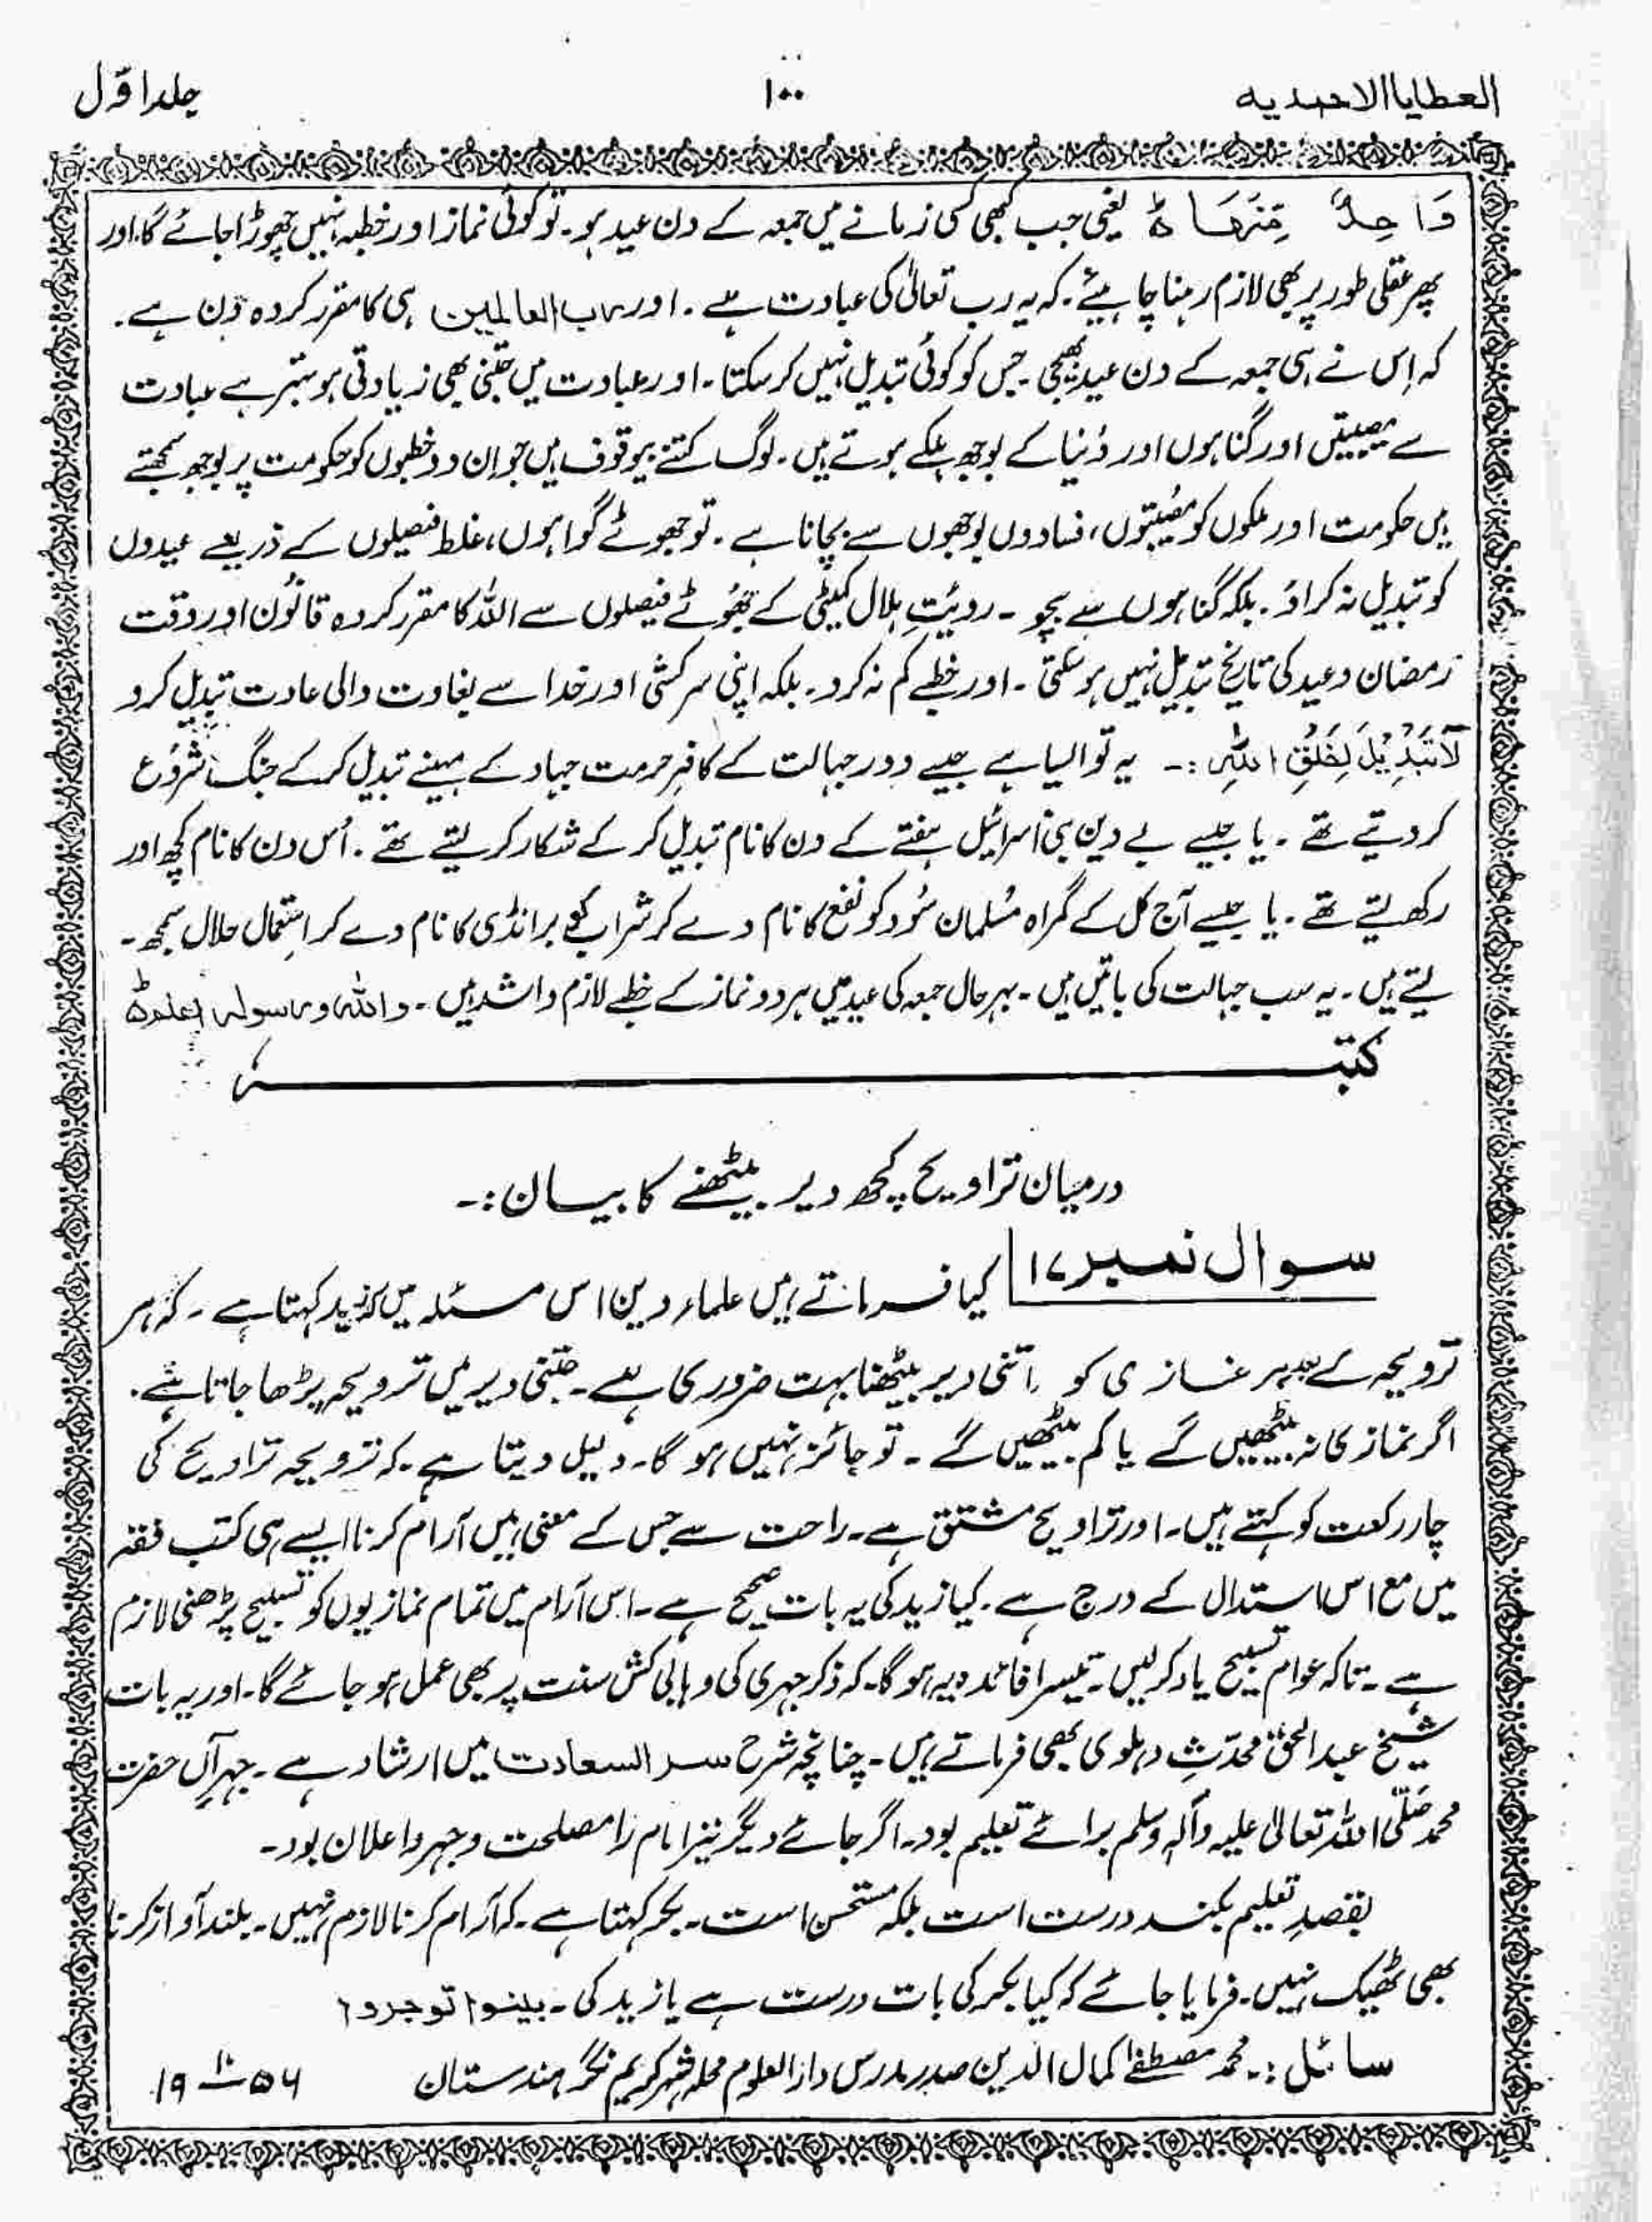 العطایا الاحمدیہ ۱۰۰ جلد اوّل
وَاحِدٌ مِّنْهَا ہ یعنی جب کبھی کسی زمانے میں جمعہ کے دن عید ہو۔ تو کوئی نماز اور خطبہ نہیں چھوڑا جائے گا۔ اور
پھر عقلی طور پر بھی لازم رہنا چاہیئے۔ کہ یہ رب تعالیٰ کی عبادت ہے۔ اور رب العالمین ہی کا مقرر کردہ دن ہے۔
کہ اِس نے ہی جمعہ کے دن عید بھیجی۔ جس کو کوئی تبدیل نہیں کر سکتا۔ اور عبادت میں جتنی بھی زیادتی ہو بہتر ہے عبادت
سے مصیبتیں اور گناہوں اور دُنیا کے بوجھ ہلکے ہوتے ہیں۔ لوگ کتنے بیوقوف ہیں جو اِن دو خطبوں کو حکومت پر بوجھ سمجھتے
ہیں حکومت اور ملکوں کو مصُیبتوں، فسادوں بوجھوں سے بچانا ہے۔ تو جھوٹے گواہوں، غلط فیصلوں کے ذریعے عیدوں
کو تبدیل نہ کراؤ۔ بلکہ گناہوں سے بچو۔ رویٔتِ ہلال کمیٹی کے جھُوٹے فیصلوں سے اللہ کا مقرر کردہ قانُون اور وقت
رمضان و عید کی تاریخ تبدیل نہیں ہو سکتی۔ اور خطبے کم نہ کرو۔ بلکہ اپنی سرکشی اور خدا سے بغاوت والی عادت تبدیل کرو
لَا تَبْدِیْلَ لِخَلْقِ اللّٰہِ :۔ یہ تو ایسا ہے جیسے دورِ جہالت کے کافر حرمت جہاد کے مہینے تبدیل کر کے جنگ شرُوع
کر دیتے تھے۔ یا جیسے بے دین بنی اسرائیل ہفتے کے دن کا نام تبدیل کر کے شکار کر لیتے تھے۔ اُس دن کا نام کچھ اور
رکھ لیتے تھے۔ یا جیسے آج کل کے گمراہ مُسلمان سُود کو نفع کا نام دے کر شراب کو برانڈی کا نام دے کر استعمال حلال سمجھ۔
لیتے ہیں۔ یہ سب جہالت کی باتیں ہیں۔ بہر حال جمعہ کی عید میں ہر دو نماز کے خطبے لازم و اشد ہیں۔ واللہ ورسولہ اعلم ہ
کتبہ
درمیان تراویح کچھ دیر بیٹھنے کا بیان:۔
سوال نمبر ۱۷ کیا فرماتے ہیں علماء دین اس مسئلہ میں کہ زید کہتا ہے۔ کہ ہر
ترویحہ کے بعد ہر نمازی کو اتنی دیر بیٹھنا بہت ضروری ہے۔ جتنی دیر میں ترویحہ پڑھا جاتا ہے۔
اگر نمازی نہ بیٹھیں گے یا کم بیٹھیں گے۔ تو جائز نہیں ہو گا۔ دلیل دیتا ہے۔ کہ ترویحہ تراویح کی
چار رکعت کو کہتے ہیں۔ اور تراویح مشتق ہے۔ راحت سے جس کے معنی ہیں آرام کرنا ایسے ہی کتب فقہ
میں مع اس استدال کے درج ہے۔ کیا زید کی یہ بات صحیح ہے۔ اس آرام میں تمام نمازیوں کو تسبیح پڑھنی لازم
ہے۔ تاکہ عوام تسبیح یاد کر لیں۔ تیسرا فائدہ یہ ہو گا۔ کہ ذکر جہری کی وہابی کش سنت پر بھی عمل ہو جائے گا۔ اور یہ بات
شیخ عبد الحق محدّثِ دہلوی بھی فرماتے ہیں۔ چنانچہ شرح سر السعادت میں ارشاد ہے۔ جہرِ آں حضرت
محمد صَلّی اللہ تعالیٰ علیہ وآلہٖ وسلم برائے تعلیم بود۔ اگر جائے دیگر نیز امام را مصلحت و جہر و اعلان بود۔
بقصدِ تعلیم بکند درست است بلکہ مستحسن است۔ بکر کہتا ہے۔ کہ آرام کرنا لازم نہیں۔ بلند آواز کرنا
بھی ٹھیک نہیں۔ فرمایا جائے کہ کیا بکر کی بات درست ہے یا زید کی۔ بینوا توجروا
سائل:۔ محمد مصطفےٰ کمال الدین صدر مدرس دارالعلوم محلہ شہر کریم نگر ہندستان